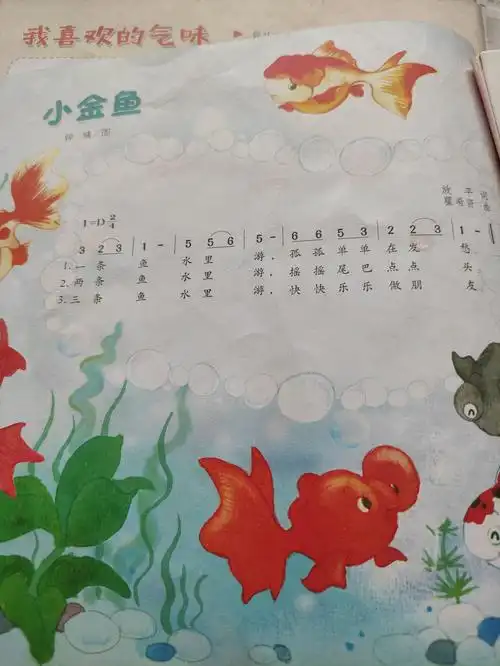 我喜欢的气味
小金鱼
图
平 词
1=D 2/4
3 2 3 | 1 - | 5 5 6 | 5 - | 6 6 5 3 | 2 2 3 | 1 - |
1.一 条 鱼 水 里 游，孤 孤 单 单 在 发 愁
2.两 条 鱼 水 里 游，摇 摇 尾 巴 点 点 头
3.三 条 鱼 水 里 游，快 快 乐 乐 做 朋 友